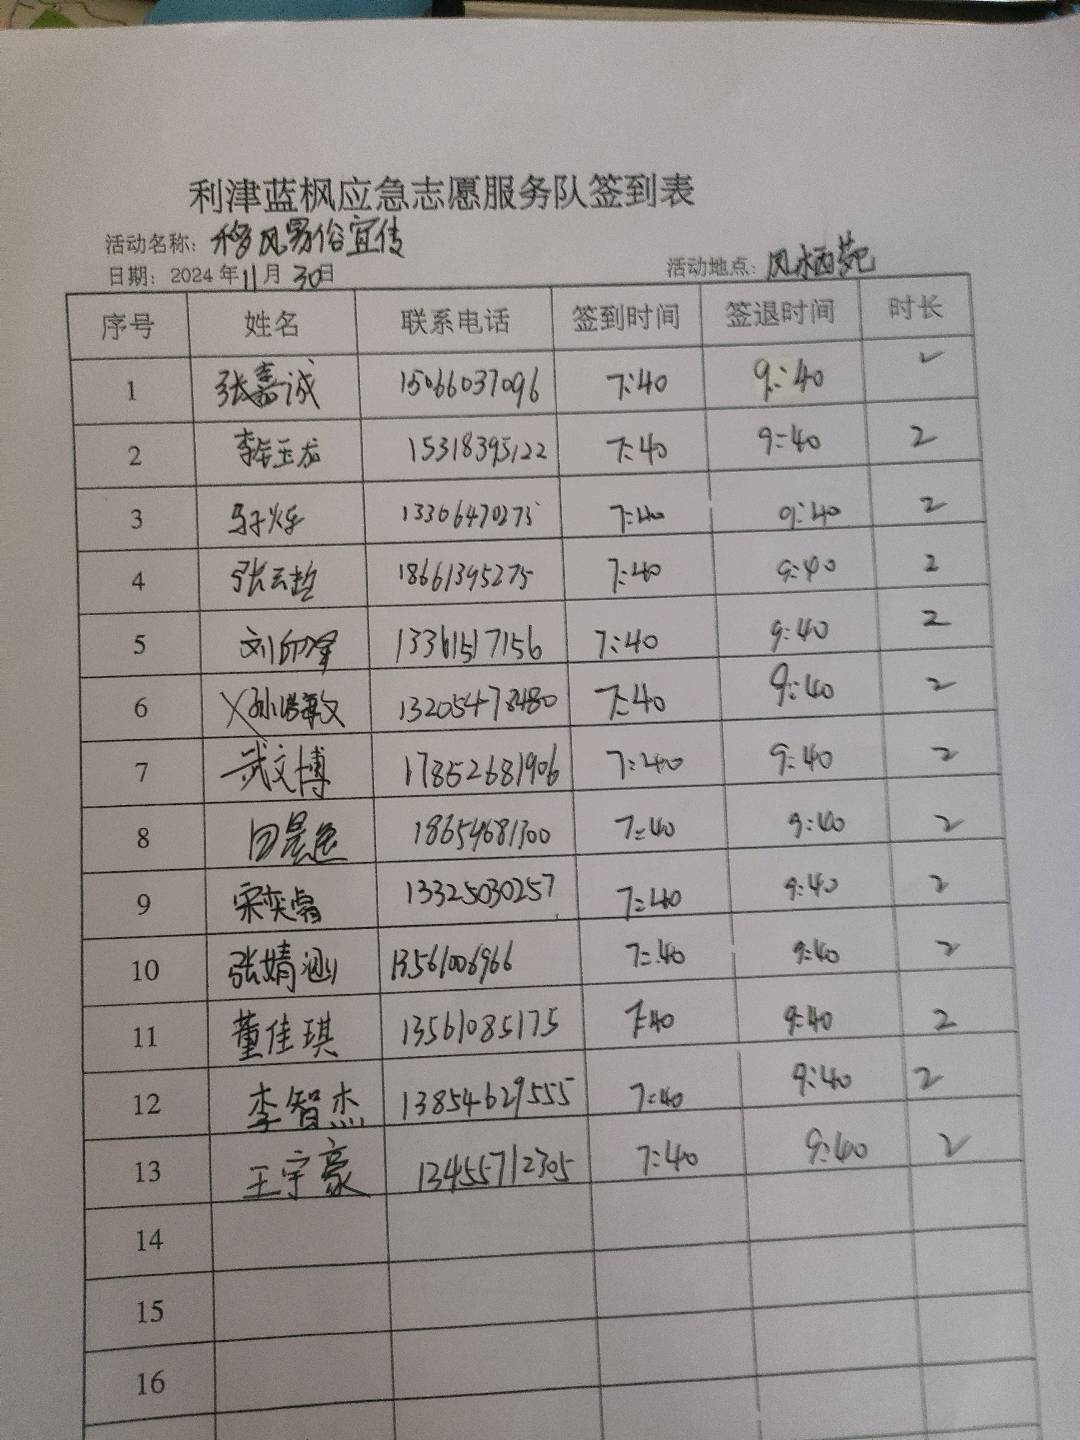 利津蓝枫应急志愿服务队签到表
活动名称：移风易俗宣传
日期：2024年11月30日 活动地点：凤栖苑
序号 姓名 联系电话 签到时间 签退时间 时长
1 张嘉诚 15066037096 7:40 9:40 2
2 李玉龙 15318395122 7:40 9:40 2
3 13306470275 7:40 9:40 2
4 张云哲 18661395275 7:40 9:40 2
5 刘印泽 13361517156 7:40 9:40 2
6 孙浩敏 13205478480 7:40 9:40 2
7 武文博 17852681906 7:40 9:40 2
8 18654681300 7:40 9:40 2
9 宋奕霖 13325030257 7:40 9:40 2
10 张婧涵 13561006966 7:40 9:40 2
11 董佳琪 13561085175 7:40 9:40 2
12 李智杰 13854629555 7:40 9:40 2
13 王宇豪 13455712305 7:40 9:40 2
14
15
16